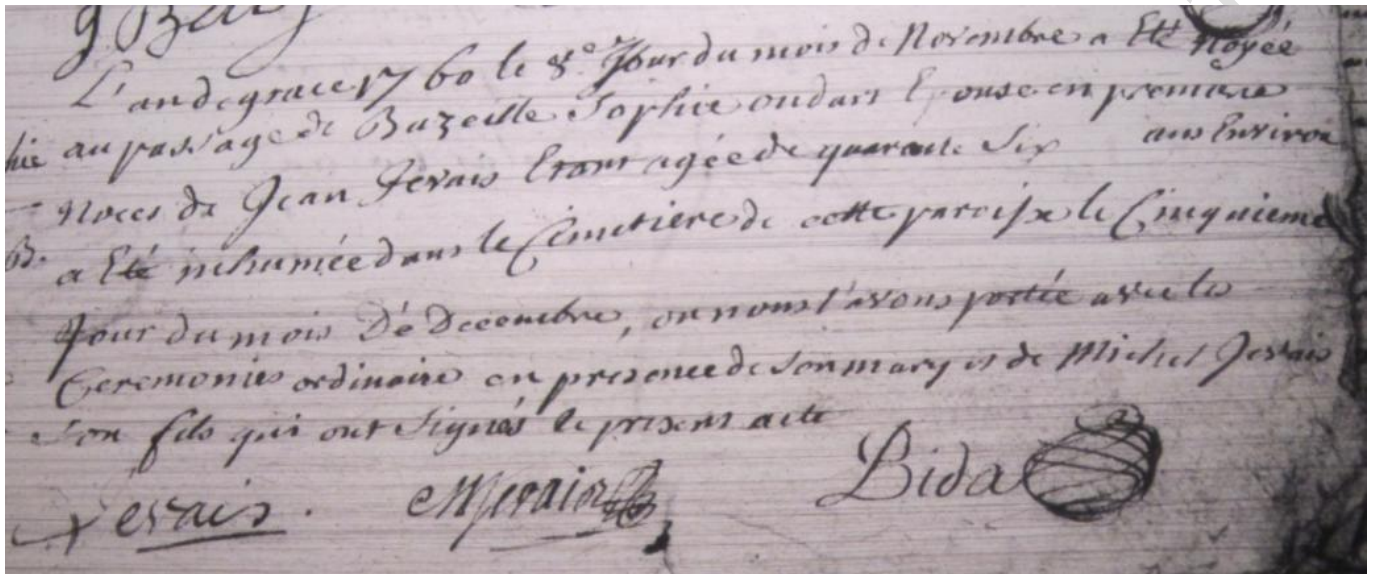 L'an de grace 1760 le 8e Jour du mois de Novembre a Eté Noyée
au passage de Bazeille Sophie oudart Epouse en premiere
Noces de Jean Jervais Etant agée de quarante Six ans Environ
a Eté inhumée dans le Cimetiere de cette paroisse le Cinquieme
Jour du mois De Decembre, ou nous l'avons portée avec les
Ceremonies ordinaire en presence de son mary et de Michel Jervais
son fils qui ont Signés le present acte
Jervais. MJervais Bida